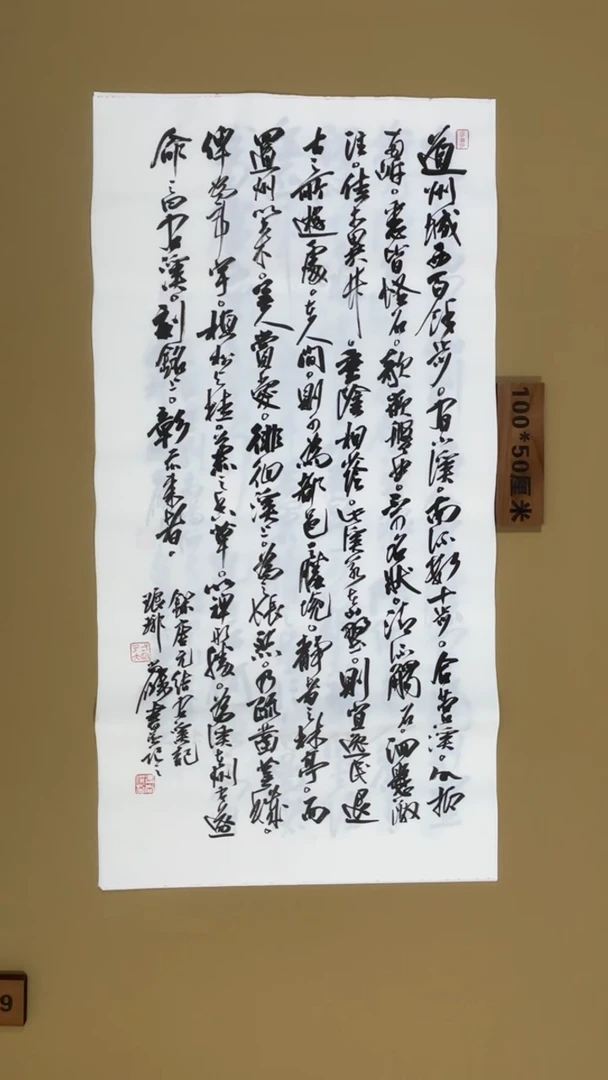 道州城西百餘步。有小溪南流數十步。合營溪。水抵
兩岸。悉皆怪石。欹嵌盤屈。不可名狀。清流觸石。洄懸激
注。佳木異竹。垂陰相蔭。此溪若在山野。則宜逸民退
士之所遊處。在人間。則可為都邑之勝境。靜者之林亭。而
置州以來。無人賞愛。徘徊溪上。為之悵然。乃疏鑿蕪穢。
俾為亭宇。植松與桂。兼之香草。以裨形勝。為溪在州右。遂
命之曰右溪。刻銘上。彰示來者。
錄唐元結右溪記
琅琊 書
100*50厘米
9